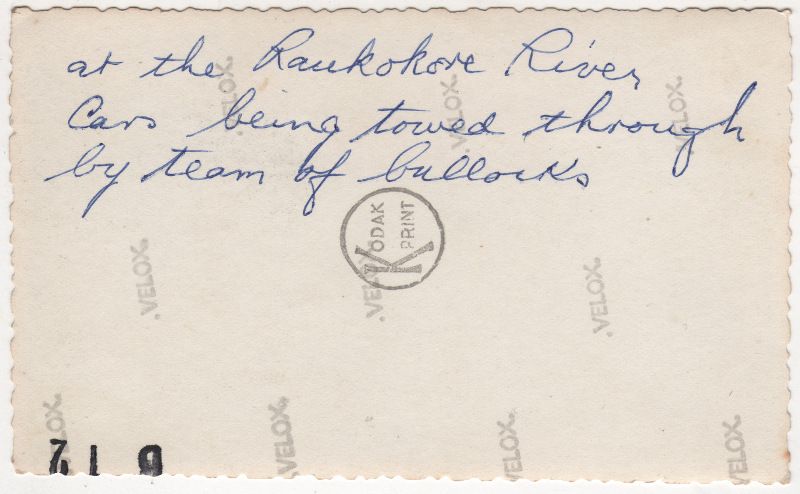 at the Raukokore River
Cars being towed through
by team of bullocks
KODAK
PRINT
.VELOX.
.VELOX.
.VELOX.
.VELOX.
.VELOX.
.VELOX.
VELOX.
.VELOX.
VELOX.
.VELOX.